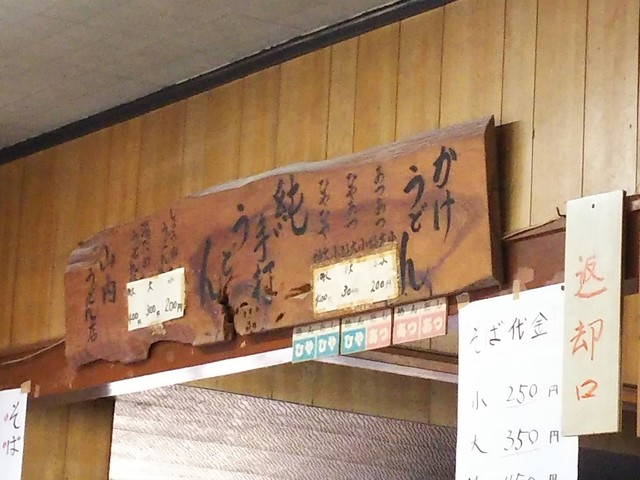 かけ
うどん
あつあつ
ひやあつ
ひやひや
小 200円
大 300
400
純
手打
うどん
小 200円
大 300
400
山内
うどん店
ひや ひや ひや あつ あつ あつ
そば代金
小 250円
大 350円
450円
返却口
そば